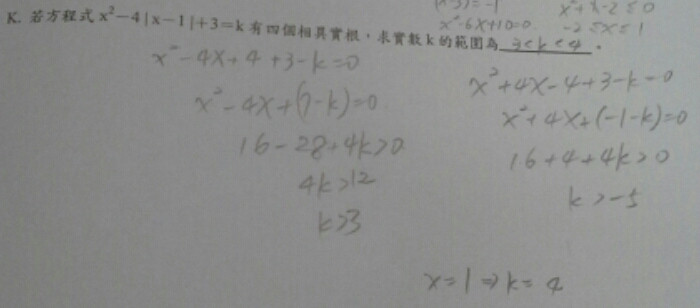 x²-6x+10=0. x²+x-2≤0
-2≤x≤1
K. 若方程式 x²-4|x-1|+3=k 有四個相異實根,求實數 k 的範圍為 3<k<4 。
x²-4x+4+3-k=0
x²-4x+(7-k)=0
16-28+4k>0
4k>12
k>3
x²+4x-4+3-k=0
x²+4x+(-1-k)=0
16+4+4k>0
k>-5
x=1⇒k=4